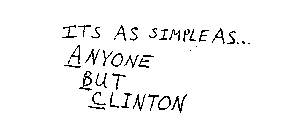 ITS AS SIMPLE AS...
ANYONE
BUT
CLINTON